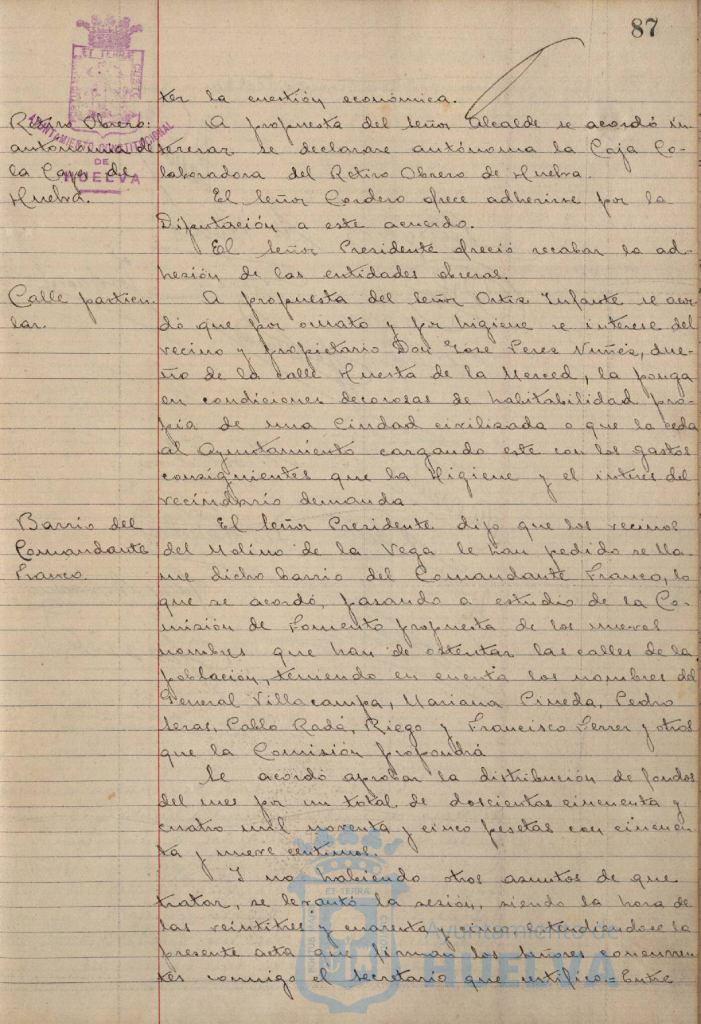 87
ter la cuestión económica.
Retiro Obrero:
autonomía de
la Caja de
Huelva.
A propuesta del Señor Alcalde se acordó in-
teresar se declarase autónoma la Caja Co-
laboradora del Retiro Obrero de Huelva.
El Señor Cordero ofrece adherirse por la
Diputación a este acuerdo.
El Señor Presidente ofreció recabar la ad-
hesión de las entidades obreras.
Calle particu-
lar.
A propuesta del Señor Ortiz Infante se acor-
dó que por ornato y por higiene se interese del
vecino y propietario Don José Perez Nuñez, due-
ño de la calle Huerta de la Merced, la ponga
en condiciones decorosas de habitabilidad pro-
pia de una Ciudad civilizada o que la ceda
al Ayuntamiento cargando este con los gastos
consiguientes que la Higiene y el interés del
vecindario demanda.
Barrio del
Comandante
Franco.
El Señor Presidente dijo que los vecinos
del Molino de la Vega le han pedido se lla-
me dicho barrio del Comandante Franco, lo
que se acordó, pasando a estudio de la Co-
misión de Fomento propuesta de los nuevos
nombres que han de ostentar las calles de la
población, teniendo en cuenta los nombres del
General Villacampa, Mariana Pineda, Pedro
Seras, Pablo Rada, Riego y Francisco Ferrer y otros
que la Comisión propondrá
Se acordó aprobar la distribución de fondos
del mes por un total de doscientas cincuenta y
cuatro mil noventa y cinco pesetas con cincuen-
ta y nueve centimos.
Y no habiendo otros asuntos de que
tratar, se levantó la sesión, siendo la hora de
las veintitres y cuarenta y cinco extendiendose la
presente acta que firman los señores concurren-
tes conmigo el Secretario que certifico.=Entre
AYUNTAMIENTO CONSTITUCIONAL
DE
HUELVA
Ayuntamiento de
HUELVA